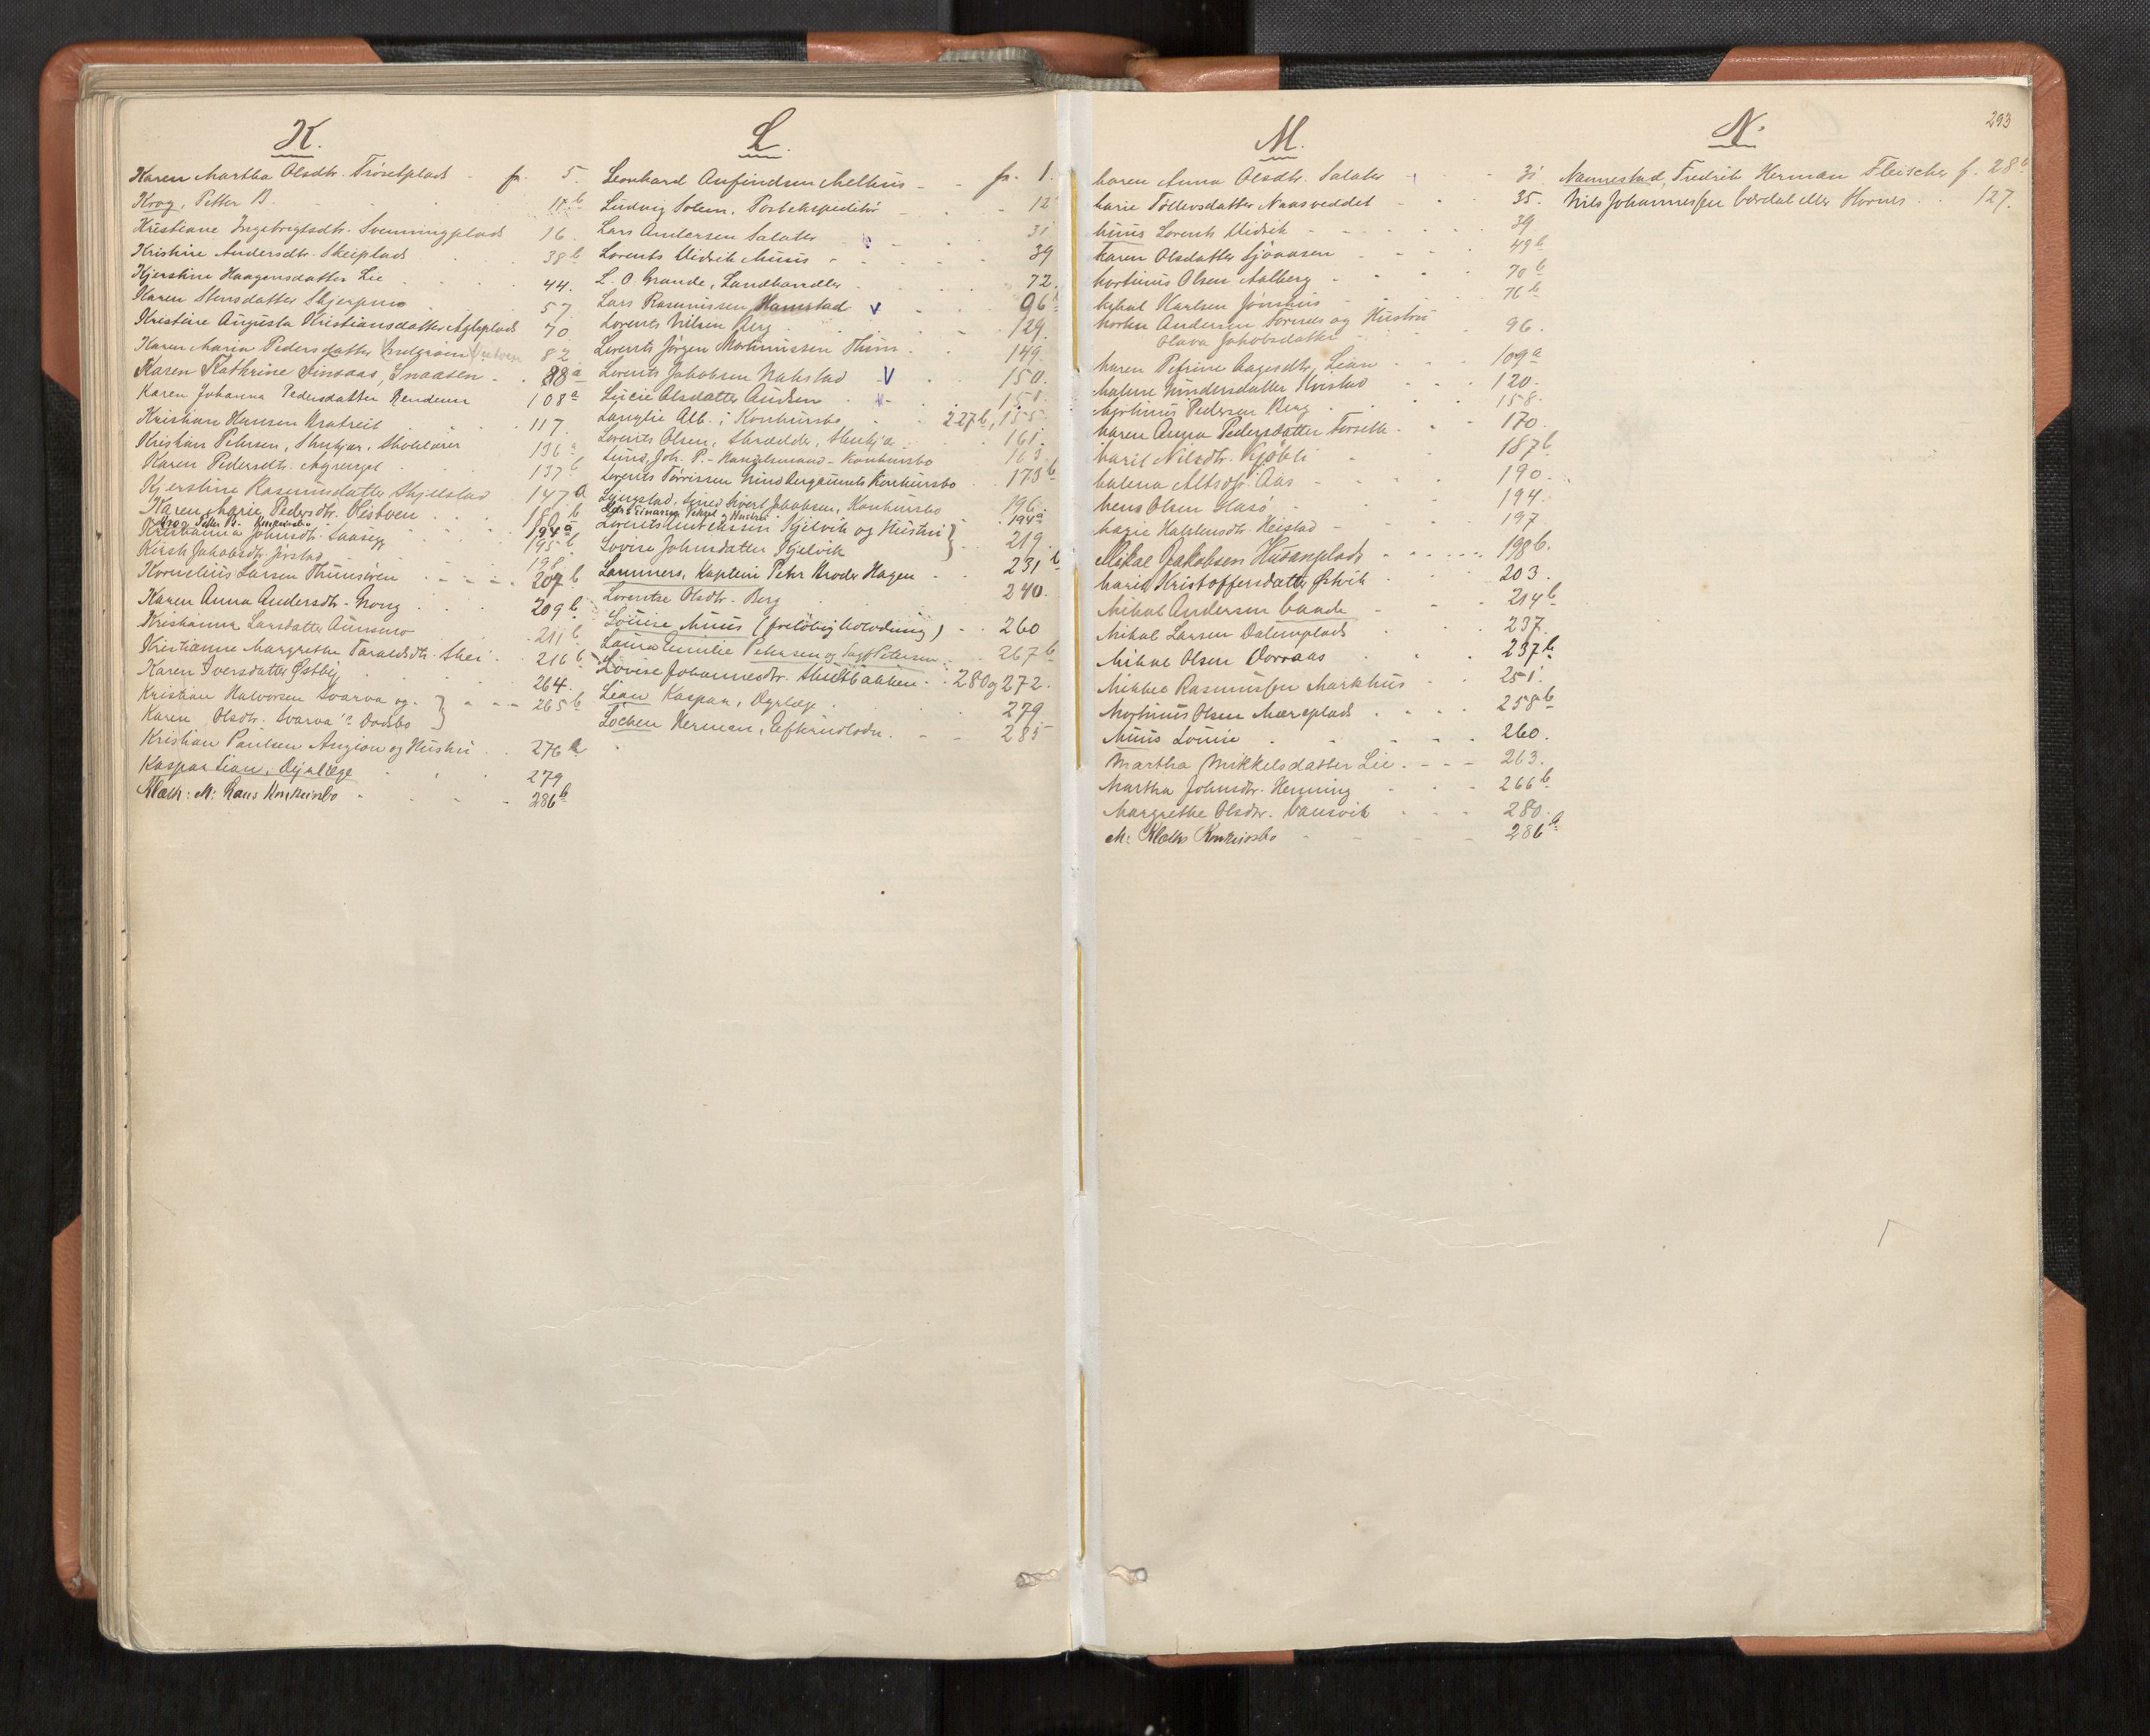 293
K.
Karen Martha Olsdtr. Trøsetplads - fr. 5.
Krog, Petter B. 11b
Kristiane Ingebrigtsdtr. Svenningplads 16.
Kristine Andersdtr. Skeiplads 38b
Kjerstine Haagensdatter Lie 44.
Karen Stensdatter Skjerpmo 57
Kristine Augusta Kristiansdatter Agleplads 70
Karen Maria Pedersdatter 82
Karen Kathrine Finsaas, Snaasen - 88a
Karen Johanna Pedersdatter Rendum 108a
Kristian Hansen Kratreit 117.
Kristian Petersen, Stenkjær, Skolelærer 136a
Karen Pedersdtr. 137b
Kjerstine Rasmusdatter Skjelstad 147a
Karen Marie Pedersdtr. Kistven 180b
Krog Petter B. Konkursbo 194a
Kristianna Johnsdtr. 195b
Kirsti Jakobsdtr. Jørstad 198
Kornelius Larsen Thunesøren 207b
Karen Anna Andersdtr. Grong 209b
Kristianna Larsdatter Aunsmo 211b
Kristianne Margrethe Taraldsdtr. Skei 216b
Karen Iversdatter Østby 264.
Kristian Halvorsen Svarva og } 265b
Karen Olsdtr. Svarva
Kristian Paulsen Angion og Hustru 276a
Kaspar Lian, Dyrlæge 279
Klæth: M: Konkursbo 286b
L.
Leonhard Anfindsen Melhus - - fr. 1.
Ludvig Solem, Postekspeditør 12
Lars Andersen Salater 31
Lorents Didrik Muus 39
L. O. Grande, Landhandler 72.
Lars Rasmussen Hamstad V 96b
Lorents Nilsen Berg 129.
Lorents Jørgen Mortinussen Thun 149.
Lorents Jakobsen Nakstad V 150.
Lucie Olsdatter 151.
Langlie Alb. i Konkursbo 227b, 155.
Lorents Olsen, Skrædder, Stenkjær 161.
Lund, Joh. P. - Handelsmand - Konkursbo 163.
Lorents Tørrissen Konkursbo 173b
Sivert Jakobsen, Konkursbo 196.
og Hustru 194a
Lorents Kjelvik og Hustru } 219
Lovise Johnsdatter Kjelvik
Lammers, Kaptein Peter Broder Hagen - 231b
Lorentse Olsdtr. Berg 240.
Louise Muus (foreløbig lovodning) - 260
Laura Emilie Petersen og Petersen 267b
Lovise Johannesdtr. Stulbakken 280 og 272.
Lian Kaspar, Dyrlæge 279.
Lochen Herman, 285
M.
Maren Anna Olsdtr. Salater 31.
Marie Tollevsdatter Naasveddet 35.
Muus Lorents Didrik 39
Maren Olsdatter Sjöaasen 49b
Mortinus Olsen Aalberg 70b
Mikal Karlsen Jønshus 76b
Morten Andersen Tornes og Hustru 96.
Olava Jakobsdatter
Maren Petrine Aagesdtr. Lian 109a
Malene Gundersdatter Kvistad 120.
Mortinus Pedersen Berg 158.
Maren Anna Pedersdatter Forseth 170.
Marit Nilsdtr. Gjøbli 187b
Malena Aas 190.
Mens Olsen Glasø 194.
Marie Haldensdtr. Heistad 197
Mikal Jakobsen Husanplads 198b.
Marit Kristoffersdatter Østvik 203.
Mikal Andersen 214b
Mikal Larsen Dalemplads 237.
Mikal Olsen Dorraas 237b
Mikkel Rasmussen Markhus 251.
Mortinus Olsen Mæreplads 258b
Muus Louise 260.
Martha Mikkelsdatter Lie 263.
Martha Johnsdtr. Henning 266b
Margrethe Olsdtr. Vansvik 280.
M: Klæths Konkursbo 286b
N.
Nannestad, Fredrik Herman Fleischer f. 28b
Nils Johannessen Værdal eller Hornes 127.